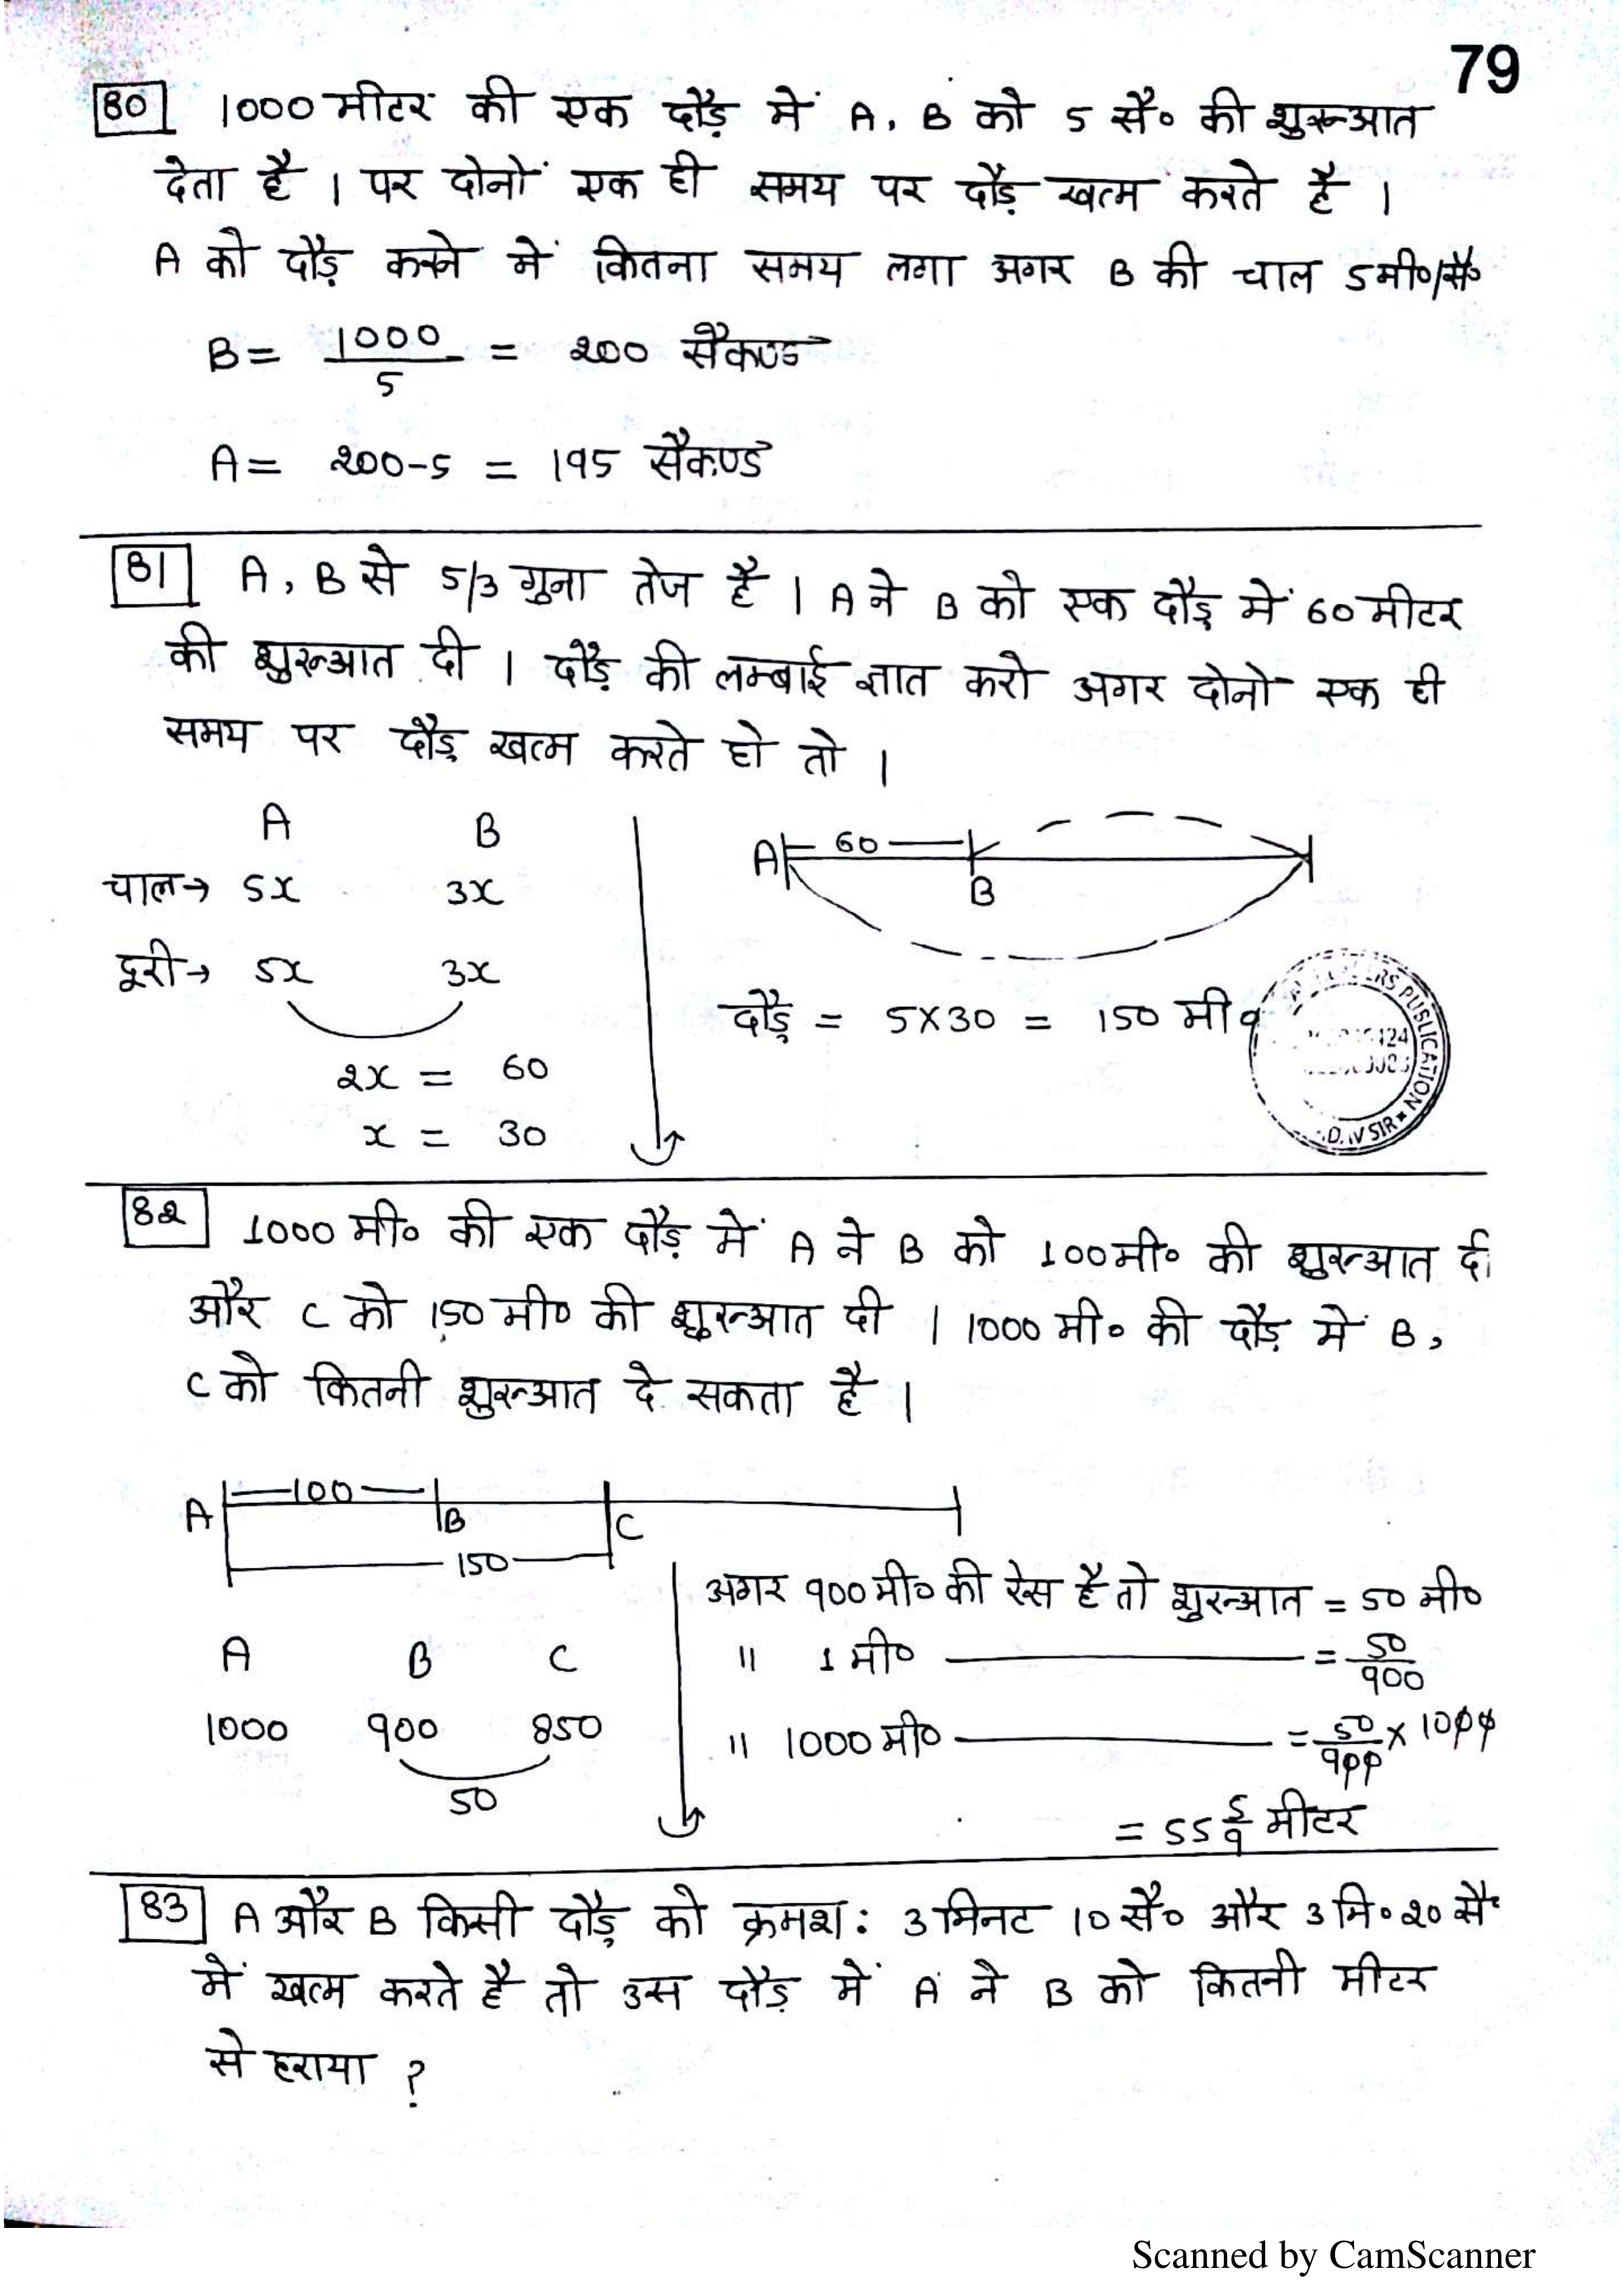 79
80 1000 मीटर की एक दौड़ में A, B को 5 सै० की शुरूआत
देता है । पर दोनों एक ही समय पर दौड़ खत्म करते है ।
A को दौड़ करने में कितना समय लगा अगर B की चाल 5मी०/सै०
B = 1000/5 = 200 सैकण्ड
A = 200-5 = 195 सैकण्ड
81 A, B से 5/3 गुना तेज है । A ने B को एक दौड़ में 60 मीटर
की शुरूआत दी । दौड़ की लम्बाई ज्ञात करो अगर दोनो एक ही
समय पर दौड़ खत्म करते हो तो ।
A B
चाल→ 5x 3x
दूरी→ 5x 3x
2x = 60
x = 30
A 60 B
दौड़ = 5X30 = 150 मी०
RS PUBLICATION
SIR
82 1000 मी० की एक दौड़ में A ने B को 100मी० की शुरूआत दी
और C को 150 मी० की शुरूआत दी । 1000 मी० की दौड़ में B,
C को कितनी शुरूआत दे सकता है ।
A 100 B C
150
A B C
1000 900 850
50
अगर 900 मी० की रेस है तो शुरूआत = 50 मी०
" 1 मी० = 50/900
" 1000 मी० = 50/900 x 1000
= 55 5/9 मीटर
83 A और B किसी दौड़ को क्रमश: 3 मिनट 10 सै० और 3 मि० 20 सै०
में खत्म करते है तो उस दौड़ में A ने B को कितनी मीटर
से हराया ?
Scanned by CamScanner